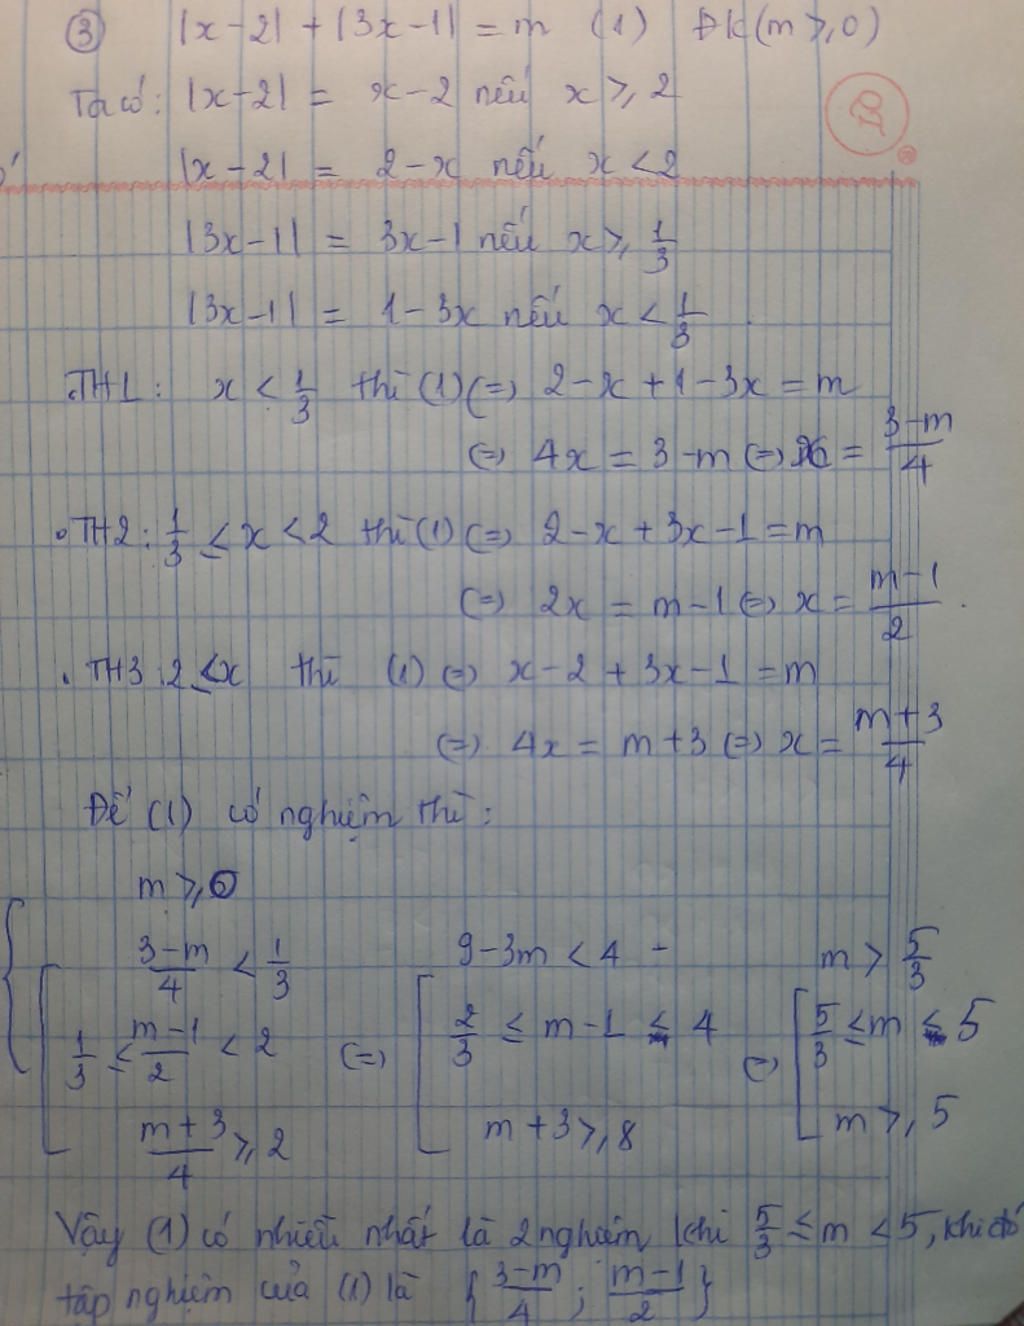 ③ |x-2| + |3x-1| = m (1) ĐK (m ≥ 0)
Ta có: |x-2| = x-2 nếu x ≥ 2
|x-2| = 2-x nếu x < 2
|3x-1| = 3x-1 nếu x ≥ 1/3
|3x-1| = 1-3x nếu x < 1/3
.TH1: x < 1/3 thì (1) (=) 2-x+1-3x = m
(=) 4x = 3-m (=) x = (3-m)/4
• TH2: 1/3 ≤ x < 2 thì (1) (=) 2-x+3x-1 = m
(=) 2x = m-1 (=) x = (m-1)/2 .
. TH3: 2 ≤ x thì (1) (=) x-2+3x-1 = m
(=) 4x = m+3 (=) x = (m+3)/4
Để (1) có nghiệm thì:
m ≥ 0
(3-m)/4 < 1/3 9-3m < 4 m > 5/3
1/3 ≤ (m-1)/2 < 2 (=) 2/3 ≤ m-1 ≤ 4 (=) 5/3 ≤ m ≤ 5
(m+3)/4 ≥ 2 m+3 ≥ 8 m ≥ 5
Vậy (1) có nhiều nhất là 2 nghiệm khi 5/3 ≤ m < 5, khi đó
tập nghiệm của (1) là {(3-m)/4 ; (m-1)/2}